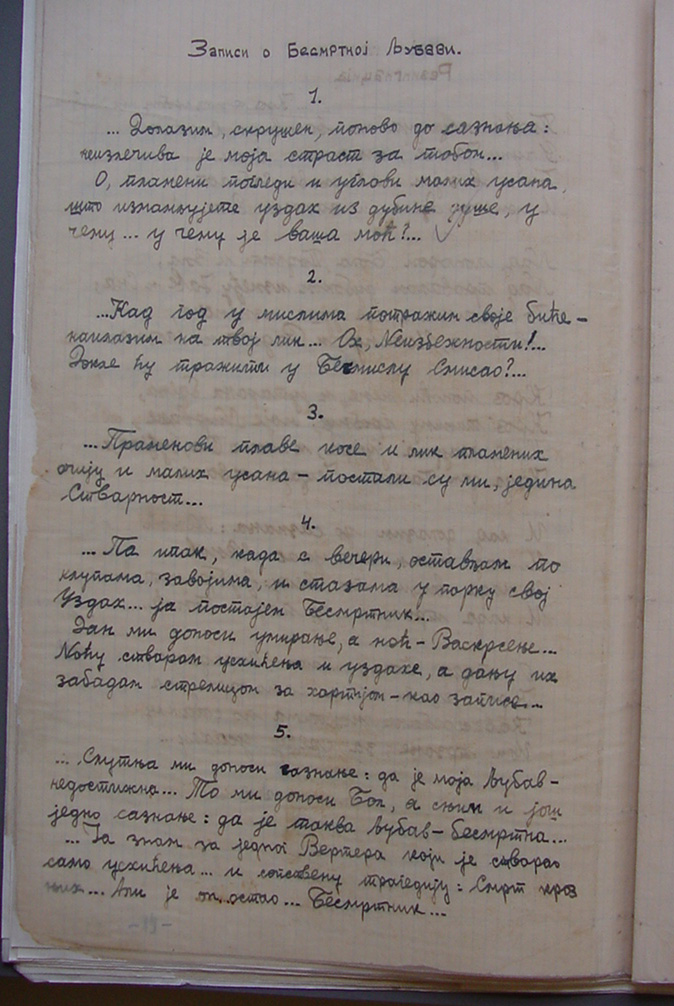 Записи о Бесмртној Љубави.
1.
... Долазим, скрушен, поново до сазнања:
неизлечива је моја страст за тобом...
О, пламени погледи и углови малих усана,
што измамљујете уздах из дубине душе, у
чему... у чему је ваша моћ?...
2.
...Кад год у мислима потражим своје биће –
наилазим на твој лик... Ох, Неизбежности!...
Докле ћу тражити у Бесмислу Смисао?...
3.
...Праменови плаве косе и лик пламених
очију и малих усана – постали су ми, једина
Стварност...
4.
...Па ипак, када с вечери, остављам по
клупама, завојима, и стазама у парку свој
Уздах... ја постајем Бесмртник...
Дан ми доноси умирање, а ноћ – Васкрсење...
Ноћу стварам усхићења и уздахе, а дању их
забадам стрелицом за хартијом – као записе...
5.
... Слутња ми доноси сазнање: да је моја Љубав –
недостижна... То ми доноси Бол, а с њим и још
једно сазнање: да је таква љубав – бесмртна...
... Ја знам за једног Вертера који је стварао
само усхићења... и сопствену трагедију: Смрт кроз
њих... Али је он остао... Бесмртник...
-15-